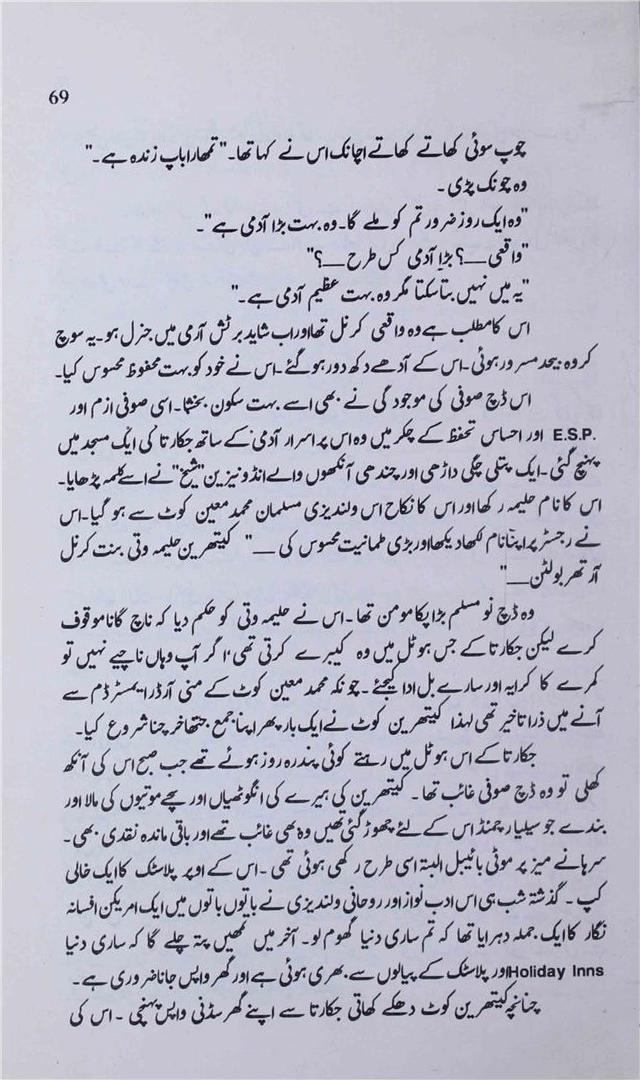 69
چوپ سوئی کھاتے کھاتے اچانک اس نے کہا تھا۔"تمھارا باپ زندہ ہے۔"
وہ چونک پڑی۔
"وہ ایک روز ضرور تم کو ملے گا۔ وہ بہت بڑا آدمی ہے"۔
"واقعی ـــ؟ بڑا آدمی کس طرح ـــ؟"
"یہ میں نہیں بتا سکتا مگر وہ بہت عظیم آدمی ہے۔"
اس کا مطلب ہے وہ واقعی کرنل تھا اور اب شاید برٹش آرمی میں جنرل ہو۔ یہ سوچ
کر وہ بیحد مسرور ہوئی۔ اس کے آدھے دکھ دور ہو گئے۔ اس نے خود کو بہت محفوظ محسوس کیا۔
اس ڈچ صوفی کی موجودگی نے بھی اسے بہت سکون بخشا۔ اسی صوفی ازم اور
E.S.P. اور احساس تحفظ کے چکر میں وہ اس پر اسرار آدمی کے ساتھ جکارتا کی ایک مسجد میں
پہنچ گئی۔ ایک پتلی چگی داڑھی اور چندھی آنکھوں والے انڈونیزین "شیخ" نے اسے کلمہ پڑھایا۔
اس کا نام حلیمہ رکھا اور اس کا نکاح اس ولندیزی مسلمان محمد معین کوٹ سے ہو گیا۔ اس
نے رجسٹر پر اپنا نام لکھا دیکھا اور بڑی طمانیت محسوس کی ـــ " کیتھرین حلیمہ وتی بنت کرنل
آرتھر بولٹن ـــ"
وہ ڈچ نو مسلم بڑا پکا مومن تھا۔ اس نے حلیمہ وتی کو حکم دیا کہ ناچ گانا موقوف
کرے لیکن جکارتا کے جس ہوٹل میں وہ کیبرے کرتی تھی 'اگر آپ وہاں ناچیے نہیں تو
کمرے کا کرایہ اور سارے بل ادا کیجئے۔ چونکہ محمد معین کوٹ کے منی آرڈر ایمسٹرڈم سے
آنے میں ذرا تاخیر تھی لہذا کیتھرین کوٹ نے ایک بار پھر اپنا جمع جتھا خرچنا شروع کیا۔
جکارتا کے اس ہوٹل میں رہتے کوئی پندرہ روز ہوئے تھے جب صبح اس کی آنکھ
کھلی تو وہ ڈچ صوفی غائب تھا۔ کیتھرین کی ہیرے کی انگوٹھیاں اور سچے موتیوں کی مالا اور
بندے جو سیلیار چمنڈ اس کے لئے چھوڑ گئی تھیں وہ بھی غائب تھے اور باقی ماندہ نقدی بھی۔
سرہانے میز پر موٹی بائیبل البتہ اسی طرح رکھی ہوئی تھی۔ اس کے اوپر پلاسٹک کا ایک خالی
کپ۔ گذشتہ شب ہی اس ادب نواز اور روحانی ولندیزی نے باتوں باتوں میں ایک امریکن افسانہ
نگار کا ایک جملہ دہرایا تھا کہ تم ساری دنیا گھوم لو۔ آخر میں تمھیں پتہ چلے گا کہ ساری دنیا
Holiday Inns اور پلاسٹک کے پیالوں سے بھری ہوئی ہے اور گھر واپس جانا ضروری ہے۔
چنانچہ کیتھرین کوٹ دھکے کھاتی جکارتا سے اپنے گھر سڈنی واپس پہنچی۔ اس کی